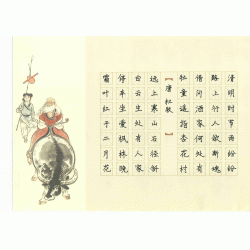 清明时节雨纷纷
路上行人欲断魂
借问酒家何处有
牧童遥指杏花村
【唐 杜牧】
远上寒山石径斜
白云生处有人家
停车坐爱枫林晚
霜叶红于二月花